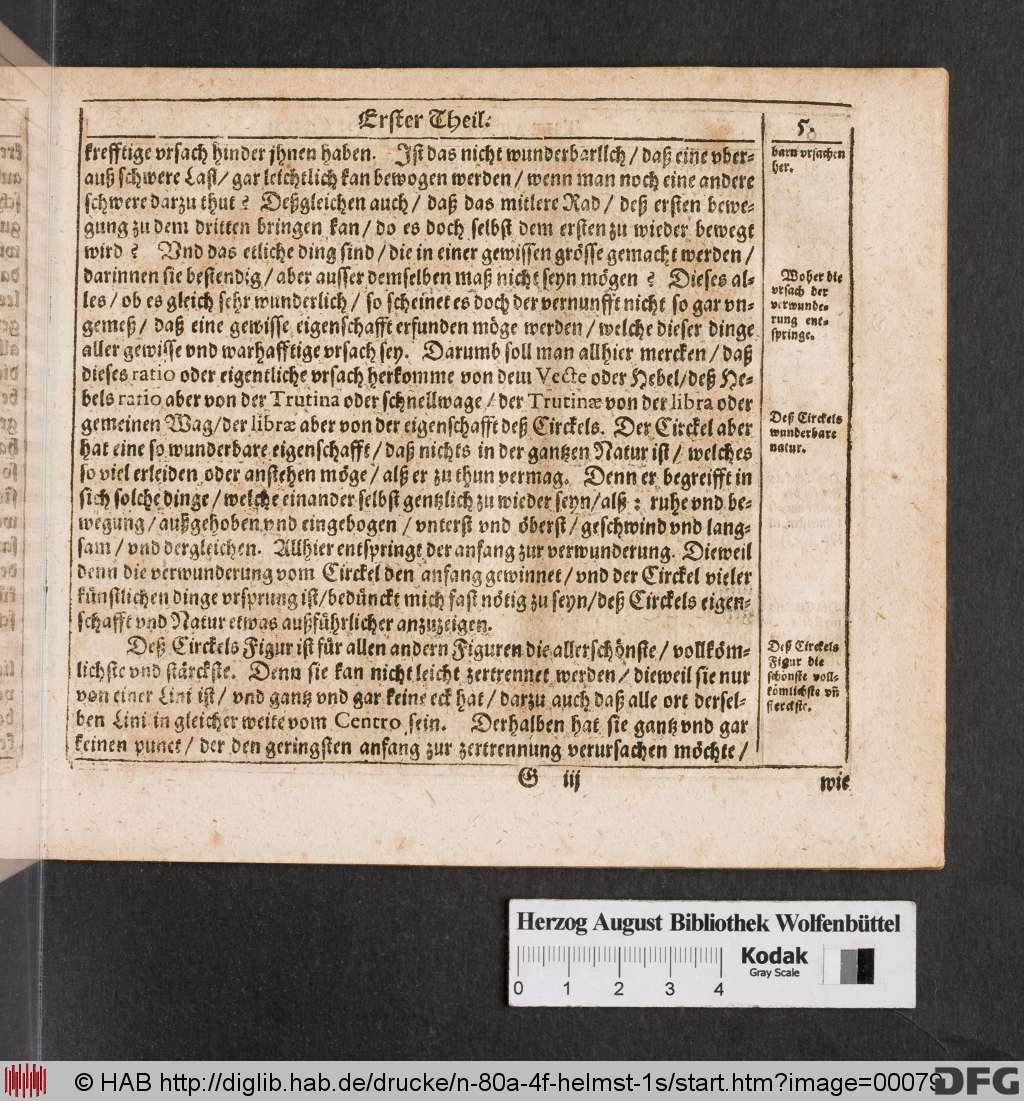 Erster Theil.
5.
krefftige vrsach hinder jhnen haben. Ist das nicht wunderbarlich / daß eine vber-
auß schwere Last / gar leichtlich kan bewogen werden / wenn man noch eine andere
schwere darzu thut? Deßgleichen auch / daß das mitlere Rad / deß ersten bewe-
gung zu dem dritten bringen kan / do es doch selbst dem ersten zu wieder bewegt
wird? Vnd das etliche ding sind / die in einer gewissen grösse gemacht werden /
darinnen sie bestendig / aber ausser demselben maß nicht seyn mögen? Dieses al-
les / ob es gleich sehr wunderlich / so scheinet es doch der vernunfft nicht so gar vn-
gemeß / daß eine gewisse eigenschafft erfunden möge werden / welche dieser dinge
aller gewisse vnd warhafftige vrsach sey. Darumb soll man allhier mercken / daß
dieses ratio oder eigentliche vrsach herkomme von dem Vecte oder Hebel / deß He-
bels ratio aber von der Trutina oder schnellwage / der Trutinæ von der libra oder
gemeinen Wag / der libræ aber von der eigenschafft deß Circkels. Der Circkel aber
hat eine so wunderbare eigenschafft / daß nichts in der gantzen Natur ist / welches
so viel erleiden oder anstehen möge / alß er zu thun vermag. Denn er begreifft in
sich solche dinge / welche einander selbst gentzlich zu wieder seyn / alß: ruhe vnd be-
wegung / außgehoben vnd eingebogen / vnterst vnd öberst / geschwind vnd lang-
sam / vnd dergleichen. Allhier entspringt der anfang zur verwunderung. Dieweil
denn die verwunderung vom Circkel den anfang gewinnet / vnd der Circkel vieler
künstlichen dinge vrsprung ist / bedünckt mich fast nötig zu seyn / deß Circkels eigen-
schafft vnd Natur etwas außführlicher anzuzeigen.
Deß Circkels Figur ist für allen andern Figuren die allerschönste / vollköm-
lichste vnd stärckste. Denn sie kan nicht leicht zertrennet werden / dieweil sie nur
von einer Lini ist / vnd gantz vnd gar keine eck hat / darzu auch daß alle ort dersel-
ben Lini in gleicher weite vom Centro sein. Derhalben hat sie gantz vnd gar
keinen punct / der den geringsten anfang zur zertrennung verursachen möchte /
G iij
wie
barn vrsachen
her.
Woher die
vrsach der
verwunde-
rung ent-
springe.
Deß Circkels
wunderbare
natur.
Deß Circkels
Figur die
schönste voll-
kömlichste vñ
sterckste.
Herzog August Bibliothek Wolfenbüttel
0 1 2 3 4
Kodak
Gray Scale
© HAB http://diglib.hab.de/drucke/n-80a-4f-helmst-1s/start.htm?image=00079
DFG